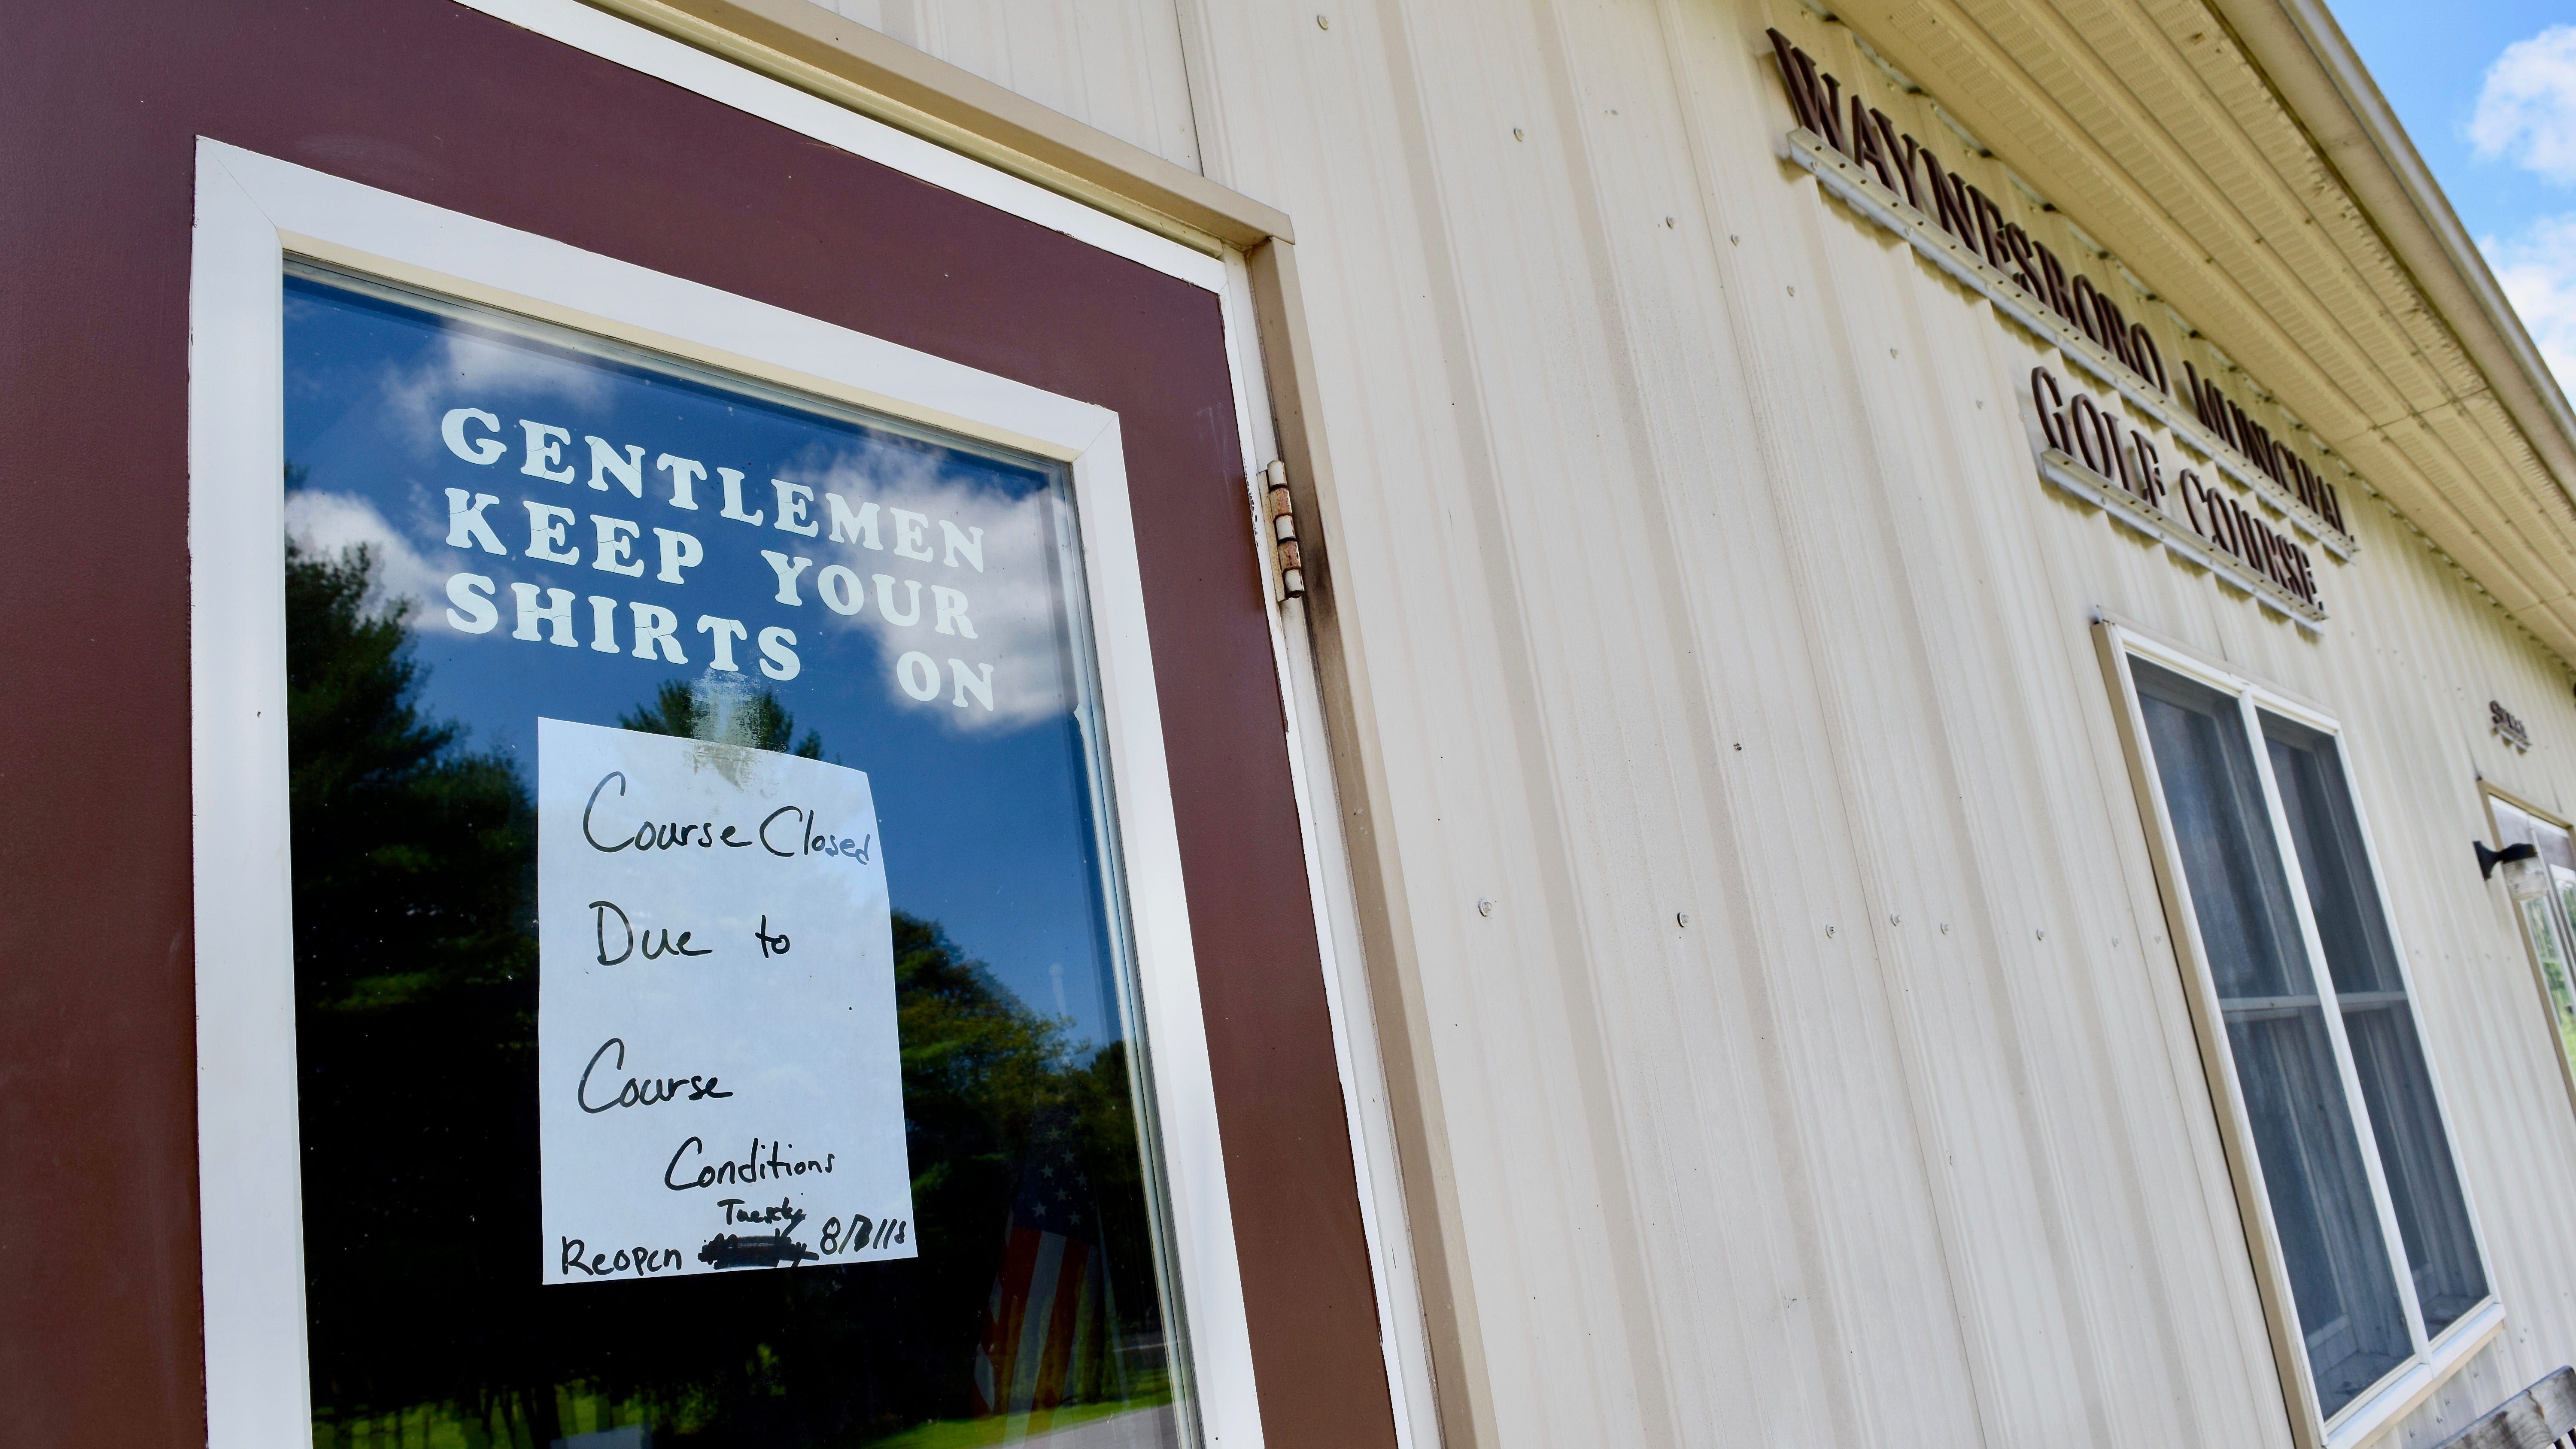 GENTLEMEN
KEEP YOUR
SHIRTS ON
Course Closed
Due to
Course
Conditions
Tuesday
Reopen 8/7/18
WAYNESBORO MUNICIPAL
GOLF COURSE